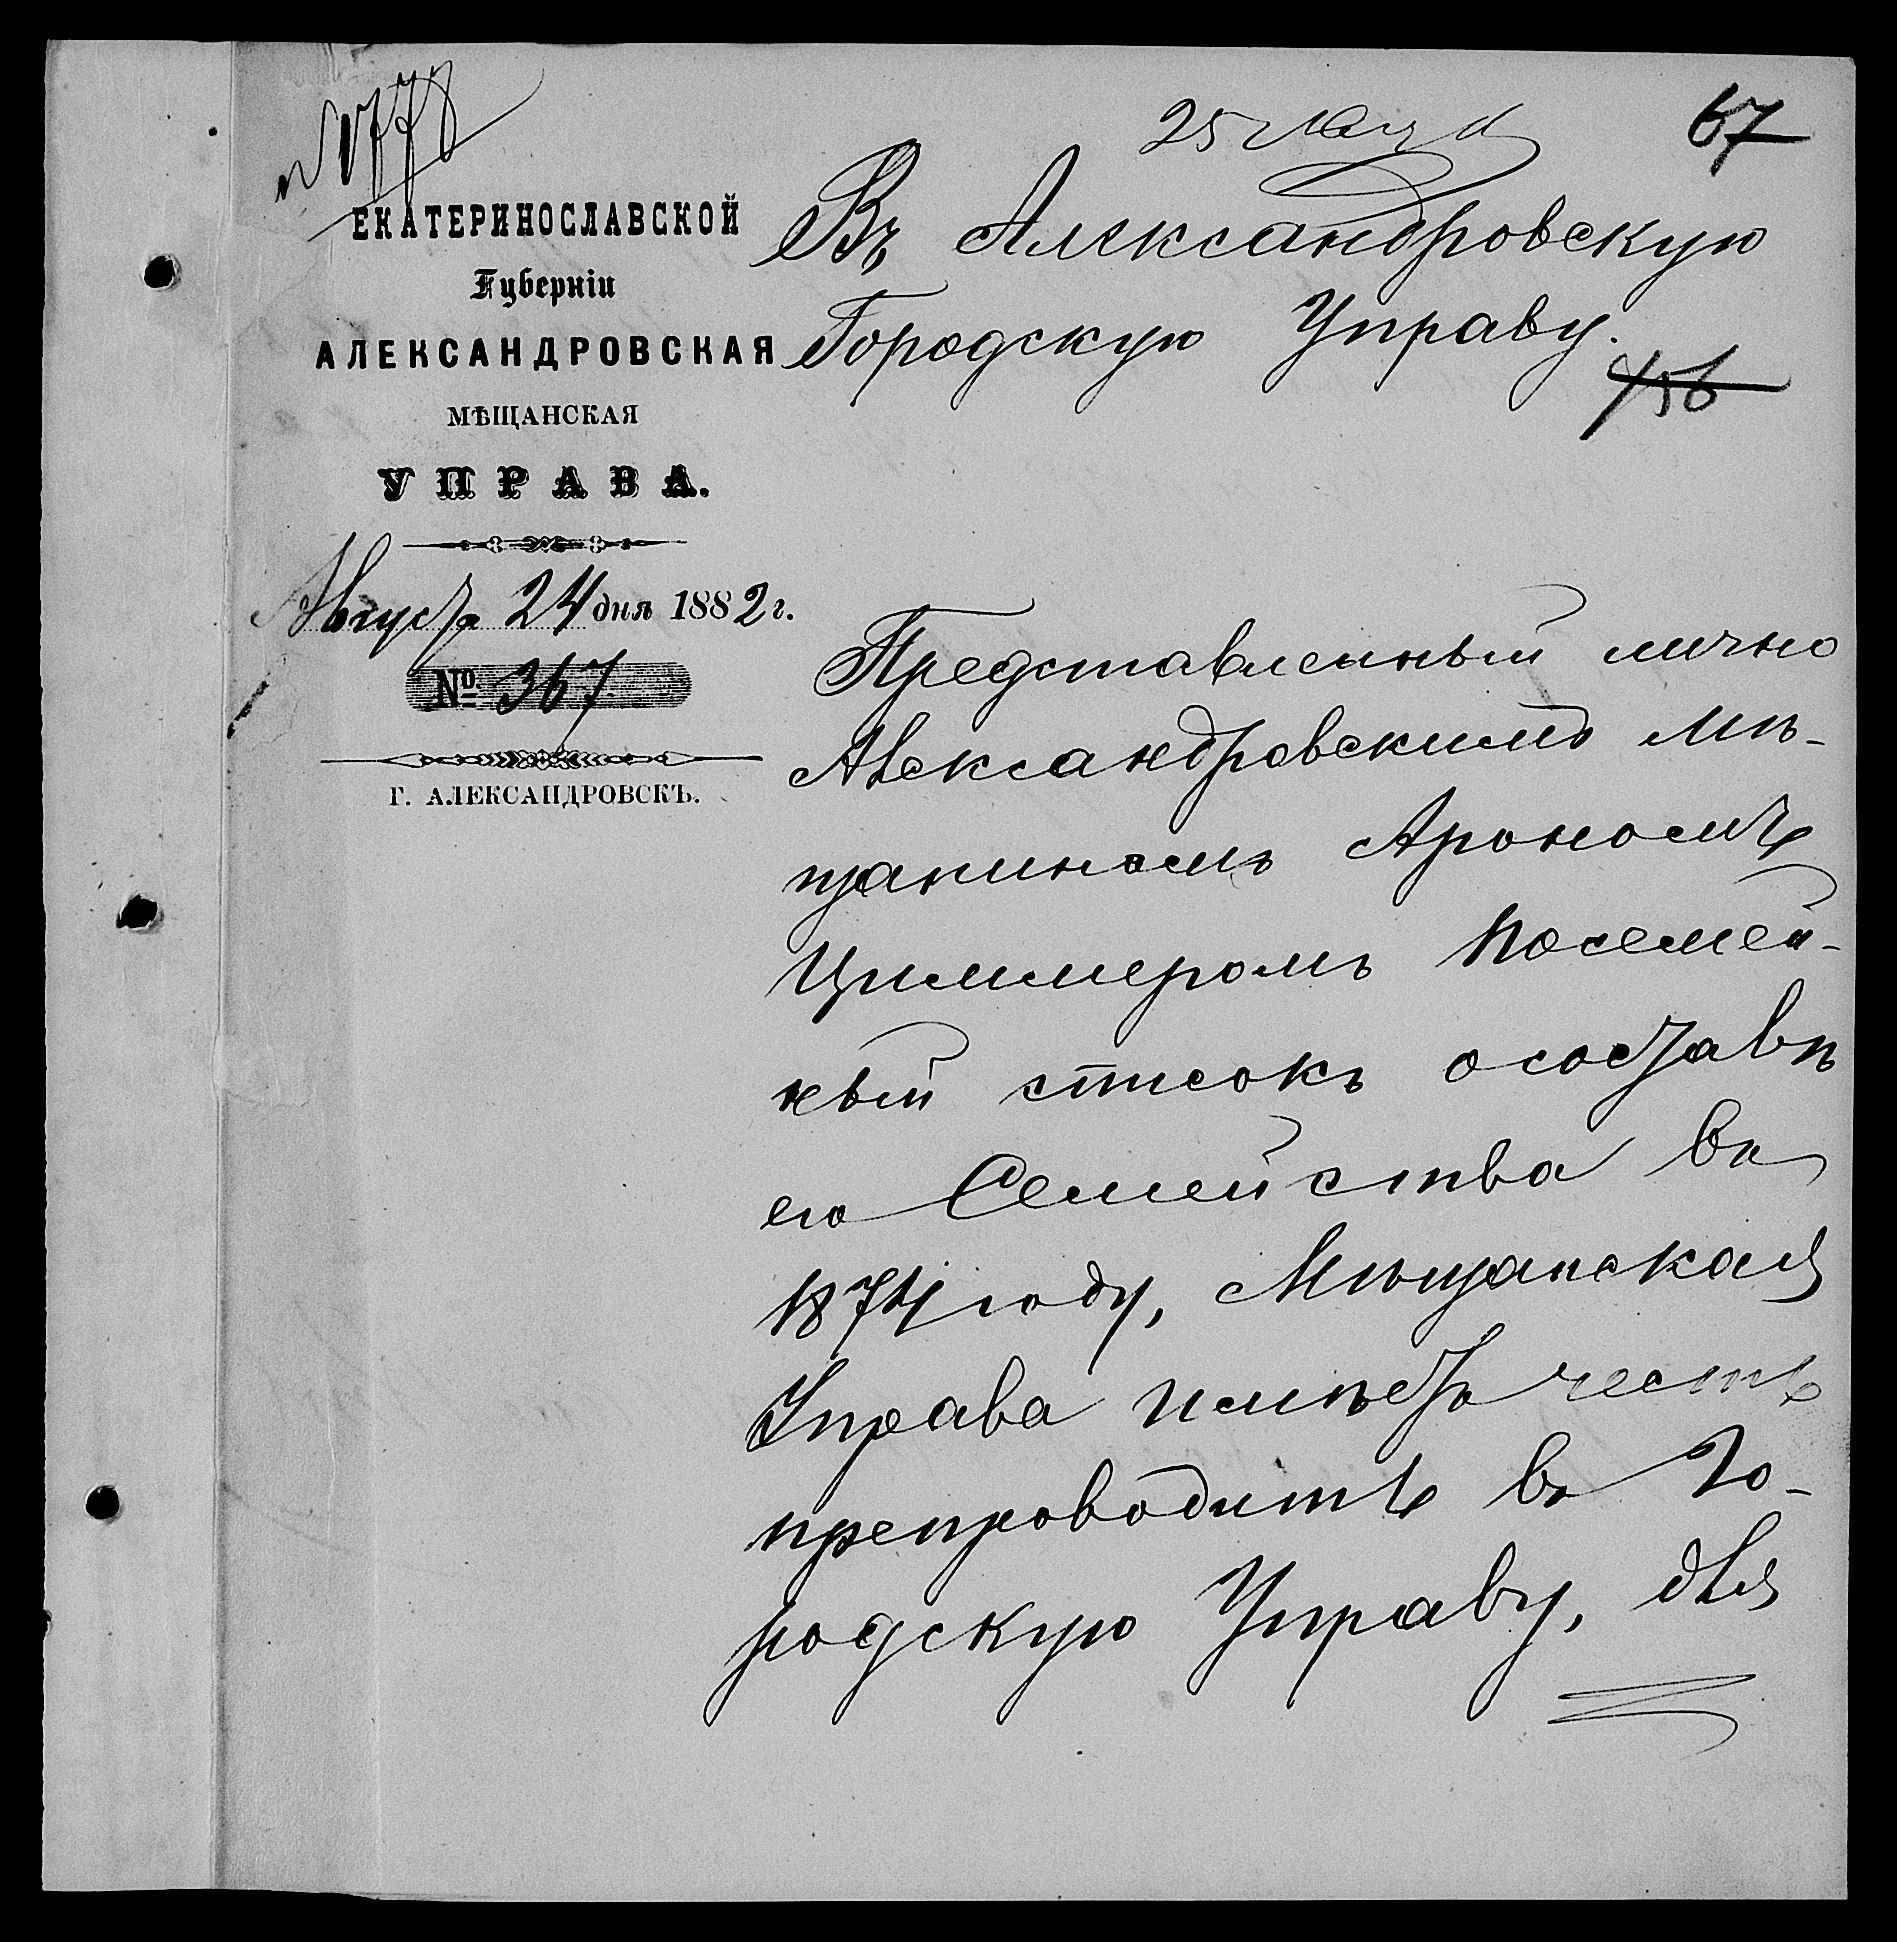 67
ЕКАТЕРИНОСЛАВСКОЙ
Губерніи
АЛЕКСАНДРОВСКАЯ
МѢЩАНСКАЯ
УПРАВА.
Августа 24 дня 1882 г.
№ 367
Г. АЛЕКСАНДРОВСКЪ.
Въ Александровскую
Городскую Управу.
456
Представленный лично
Александровскимъ мѣ-
щаниномъ Арономъ
Циммеромъ посемей-
ный списокъ о составѣ
его Семейства въ
1874 году, Мѣщанская
Управа имѣетъ честь
препроводить въ Го-
родскую Управу, для